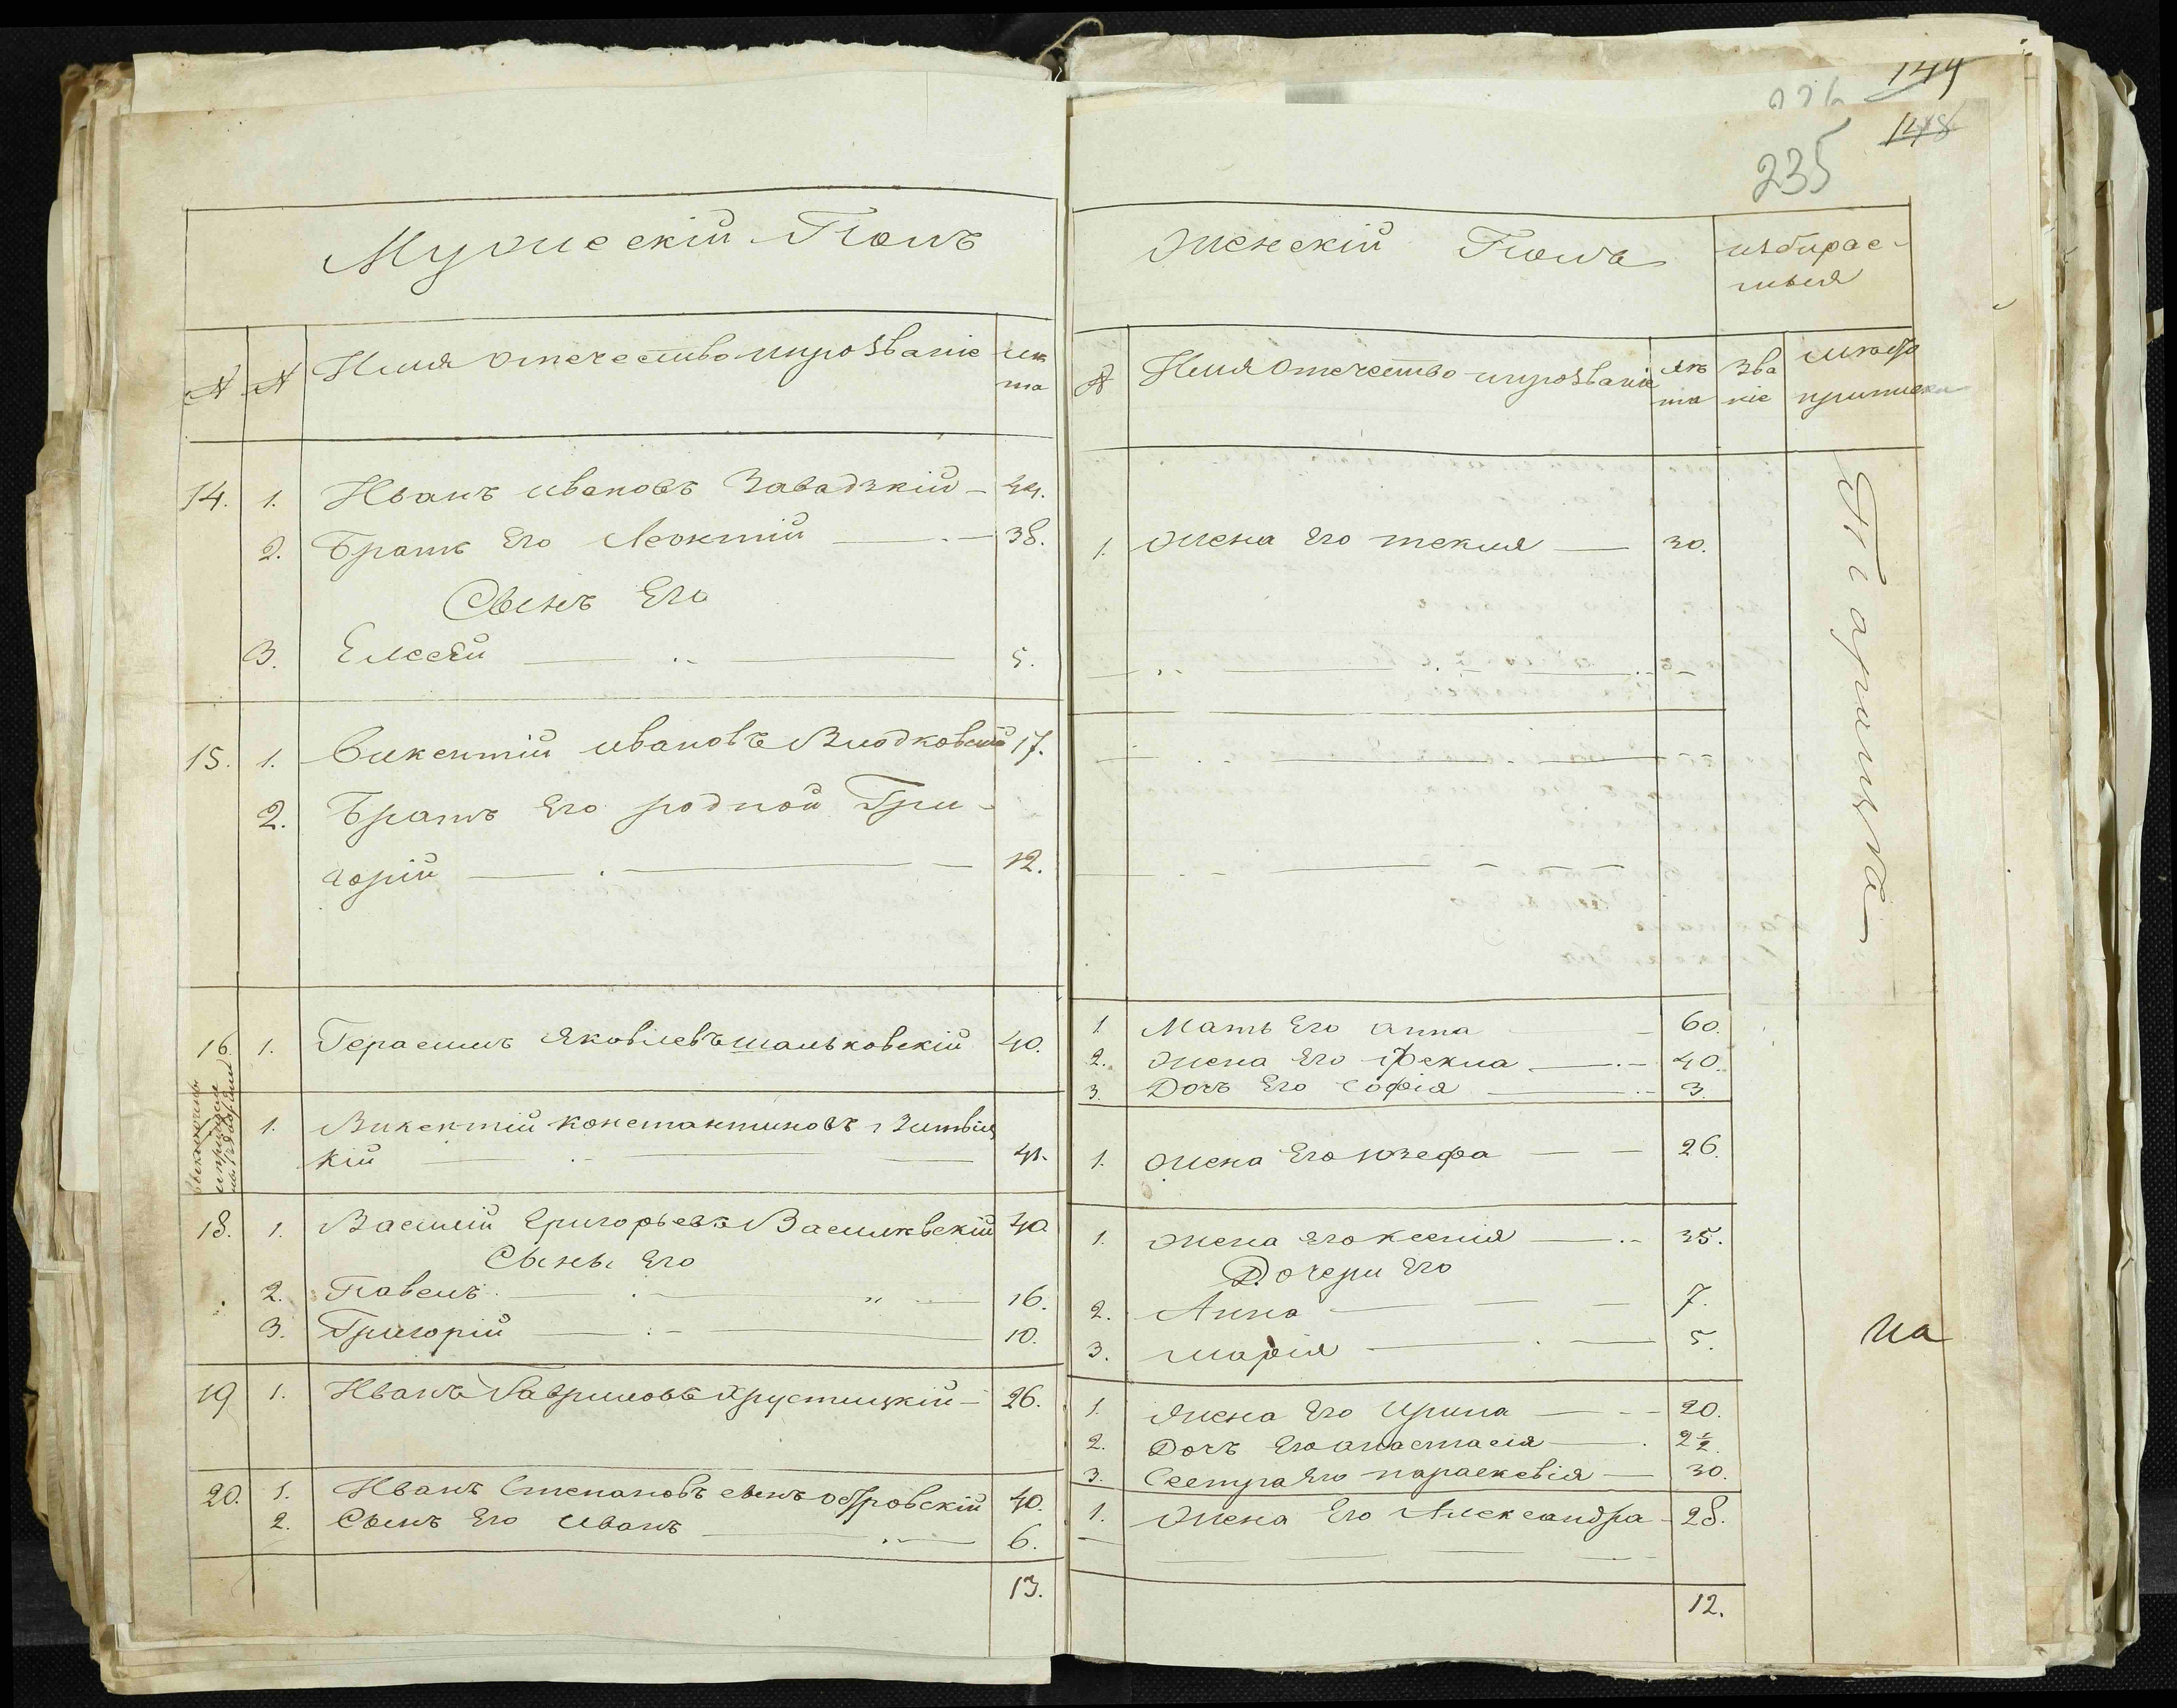 144
226
148
235
Мужескiй Полъ
№ № Имя отечество ипрозванiе лѣ
та
14. 1. Иванъ ивановъ Завадзкiй 44.
2. Братъ Его Леонтiй 38.
Сынъ Его
3. Елисей 5.
15. 1. Викентiй ивановъ 17.
2. Братъ Его родной Гри-
горiй 12.
16. 1. Герасимъ яковлевъ шаньковскiй 40.
1. Викентiй константиновъ
кiй 41.
18. 1. Василiй Григорьевъ Васильквскiй 40
Сыны Его
2. Павелъ 16.
3. Григорiй 10.
19 1. Иванъ Гавриловъ Хрустицкiй 26.
20. 1. Иванъ Степановъ сынъ островскiй 40.
2. Сынъ Его иванъ 6.
13.
Женскiй Полъ избирае-
мыя
№ Имя отечество ипрозванiе лѣ
та Зва
нiе место
приписки
1. жена Его текля 30.
1. Мать Его анна 60.
2. жена Его Фекла 40.
3. Дочь Его софiя 3.
1. жена Его юзефа 26.
1. жена Его ксенiя 35.
Дочери Его
2. Анна 7.
3. марiя 5.
1. жена Его ирина 20.
2. Дочь Его анастасiя 2½.
3. Сестра Его параскевiя 30.
1. жена Его Александра 28.
12.
на